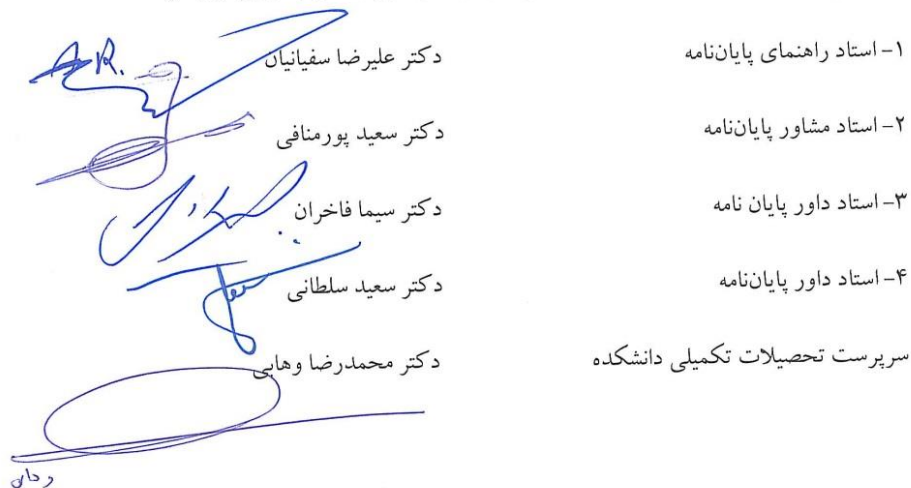 ۱- استاد راهنمای پایان‌نامه دکتر علیرضا سفیانیان
A.R.
۲- استاد مشاور پایان‌نامه دکتر سعید پورمنافی
۳- استاد داور پایان نامه دکتر سیما فاخران
۴- استاد داور پایان‌نامه دکتر سعید سلطانی
سرپرست تحصیلات تکمیلی دانشکده دکتر محمدرضا وهابی